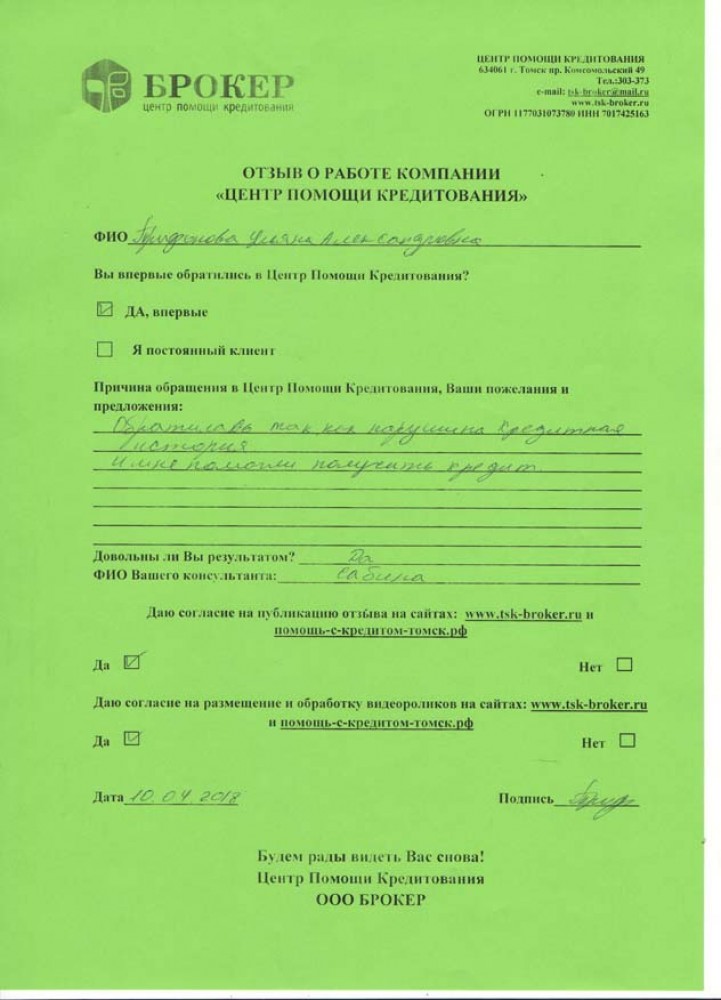 БРОКЕР
центр помощи кредитования
ЦЕНТР ПОМОЩИ КРЕДИТОВАНИЯ
634061 г. Томск пр. Комсомольский 49
Тел.:303-373
e-mail: tsk-broker@mail.ru
www.tsk-broker.ru
ОГРН 1177031073780 ИНН 7017425163
ОТЗЫВ О РАБОТЕ КОМПАНИИ
«ЦЕНТР ПОМОЩИ КРЕДИТОВАНИЯ»
ФИО Ульяна Александровна
Вы впервые обратились в Центр Помощи Кредитования?
ДА, впервые
Я постоянный клиент
Причина обращения в Центр Помощи Кредитования, Ваши пожелания и
предложения:
Обратилась так как нарушена кредитная
история
и мне помогли получить кредит
Довольны ли Вы результатом? Да
ФИО Вашего консультанта: Сабина
Даю согласие на публикацию отзыва на сайтах: www.tsk-broker.ru и
помощь-с-кредитом-томск.рф
Да Нет
Даю согласие на размещение и обработку видеороликов на сайтах: www.tsk-broker.ru
и помощь-с-кредитом-томск.рф
Да Нет
Дата 10.04.2018 Подпись
Будем рады видеть Вас снова!
Центр Помощи Кредитования
ООО БРОКЕР